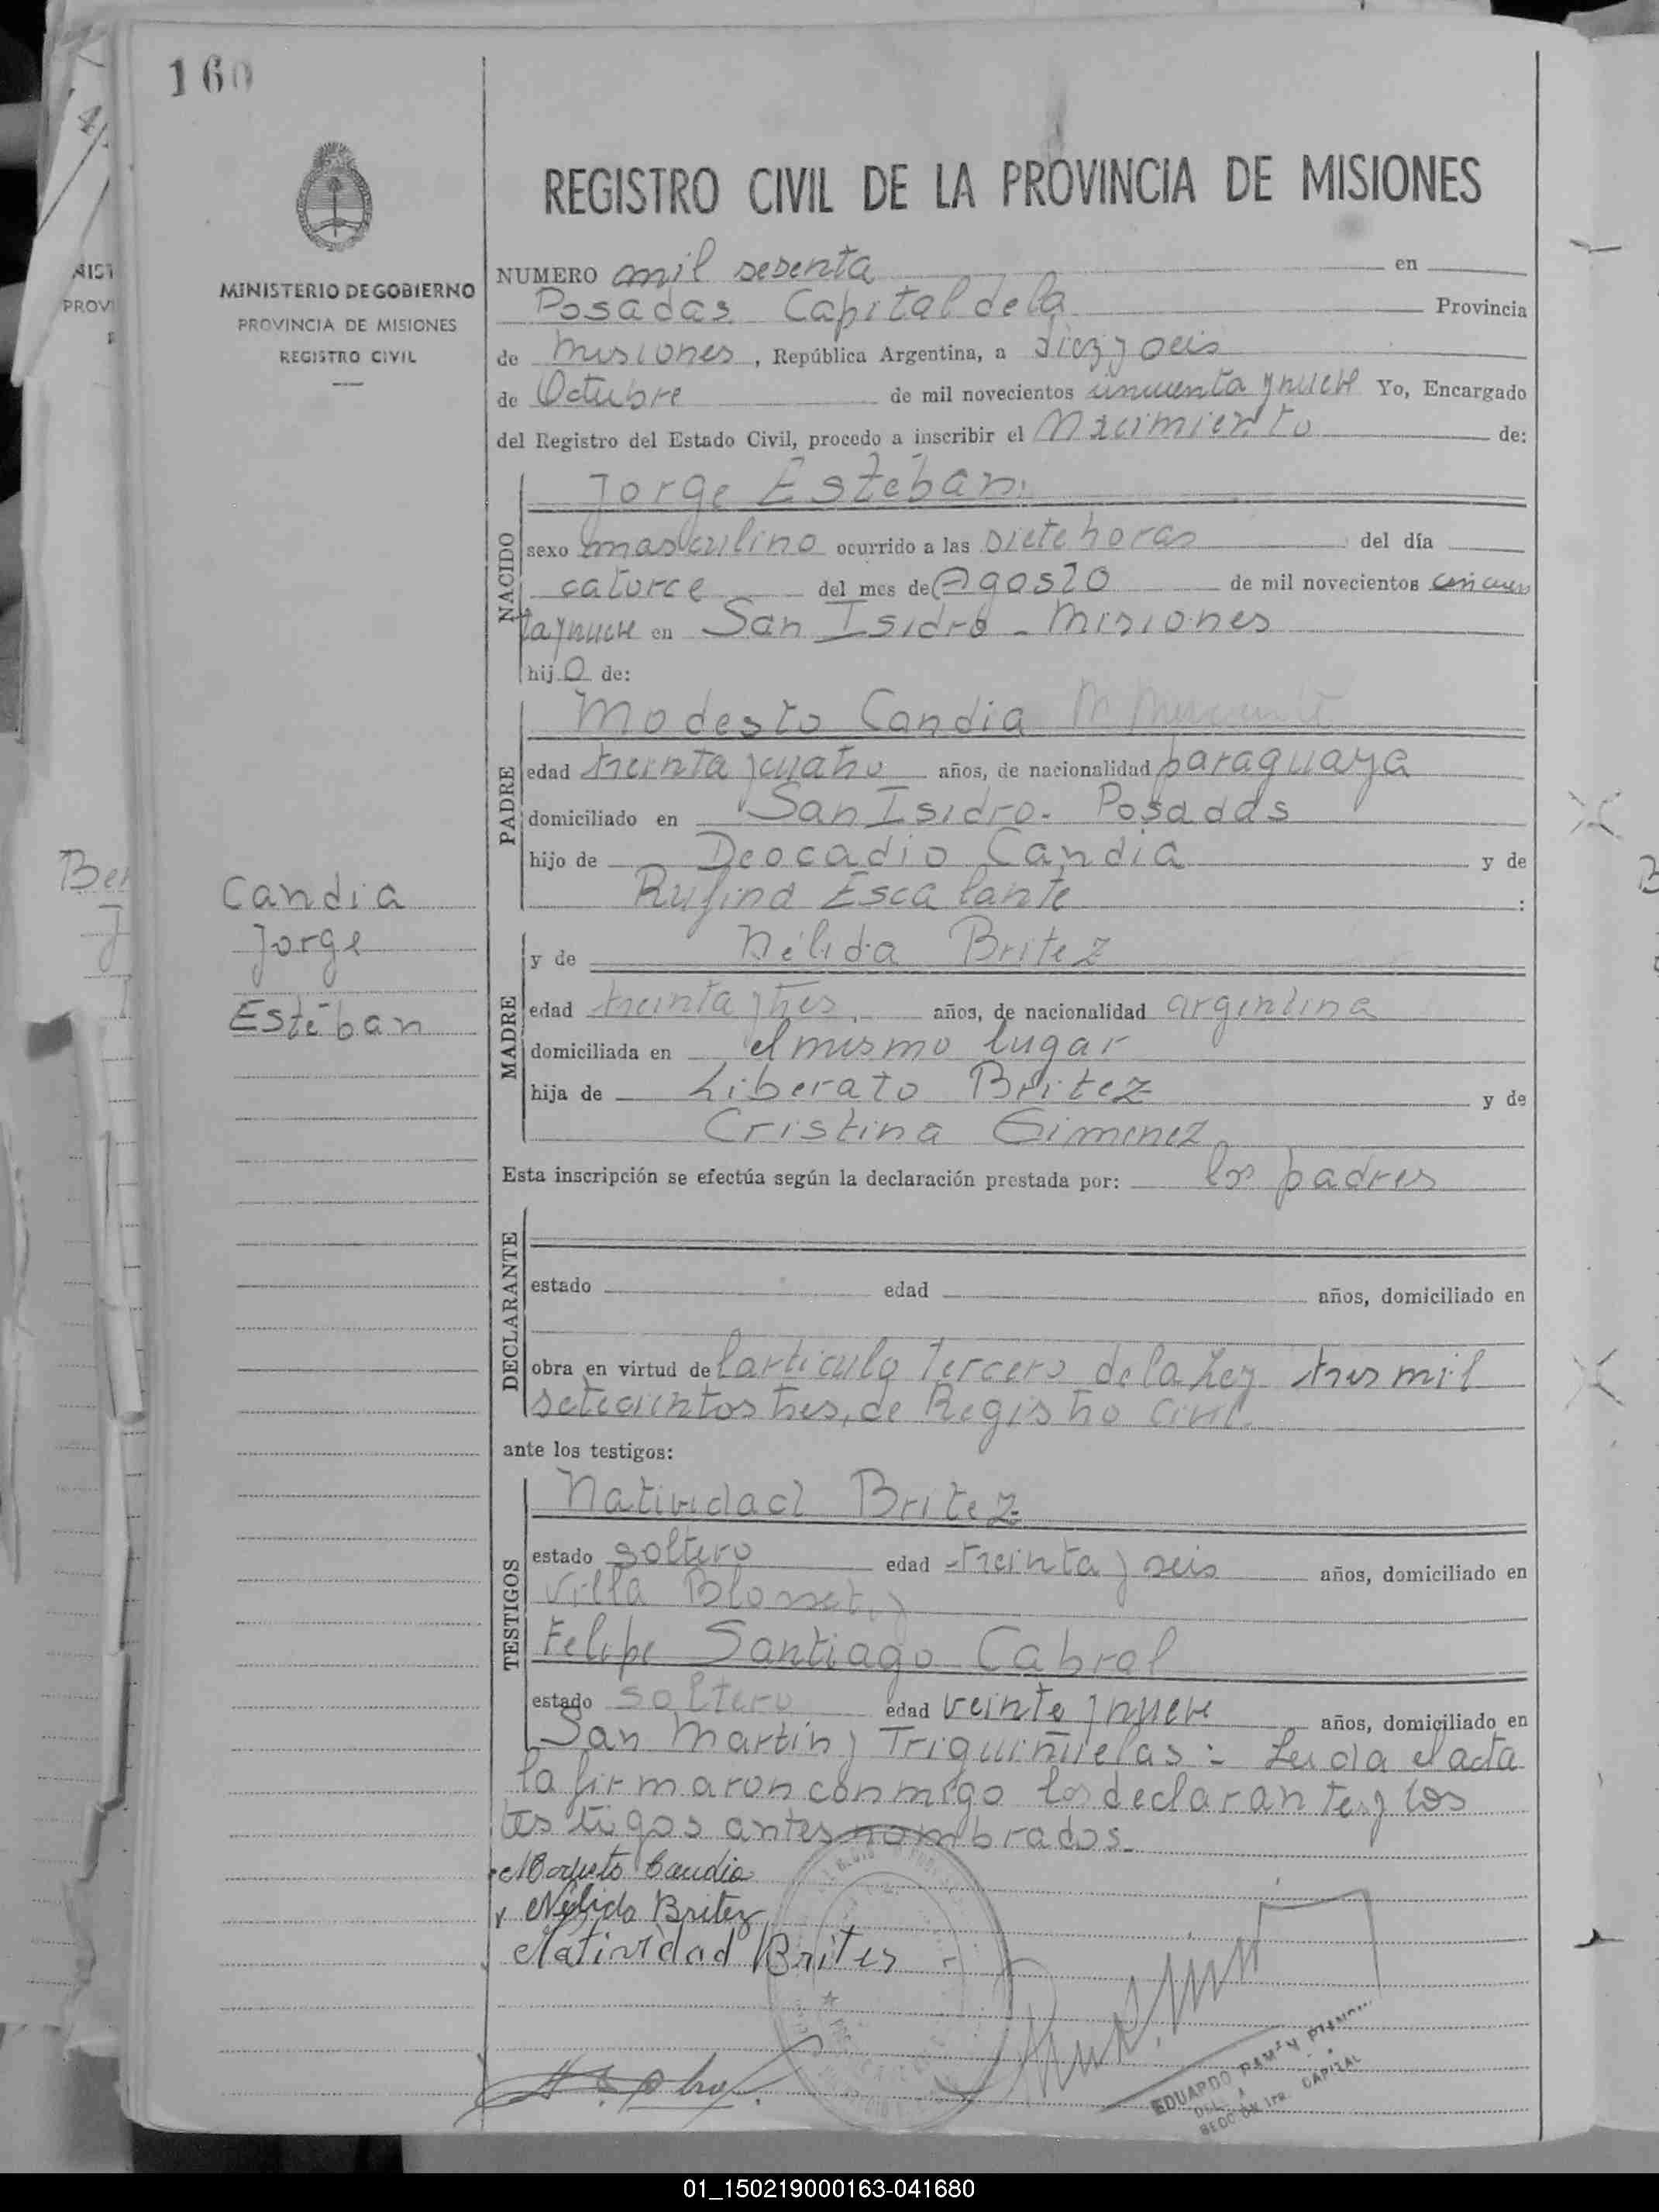 160
MINISTERIO DE GOBIERNO
PROVINCIA DE MISIONES
REGISTRO CIVIL
Candia
Jorge
Estéban
REGISTRO CIVIL DE LA PROVINCIA DE MISIONES
NUMERO mil sesenta en
Posadas Capital de la Provincia
de Misiones, República Argentina, a diez y seis
de Octubre de mil novecientos cincuenta y nueve Yo, Encargado
del Registro del Estado Civil, procedo a inscribir el Nacimiento de:
NACIDO
Jorge Estéban
sexo masculino ocurrido a las siete horas del día
catorce del mes de Agosto de mil novecientos cincuen
ta y nueve en San Isidro - Misiones
hijo de:
PADRE
Modesto Candia
edad treinta y cuatro años, de nacionalidad paraguaya
domiciliado en San Isidro - Posadas
hijo de Deocadio Candia y de
Rufina Escalante :
MADRE
y de Nélida Britez
edad treinta y tres años, de nacionalidad argentina
domiciliada en el mismo lugar
hija de Liberato Britez y de
Cristina Gimenez
Esta inscripción se efectúa según la declaración prestada por: los padres
DECLARANTE
estado edad años, domiciliado en
obra en virtud del artículo tercero de la Ley tres mil
setecientos tres, de Registro Civil.
ante los testigos:
TESTIGOS
Natividad Britez
estado soltero edad treinta y seis años, domiciliado en
Villa Blosset y
Felipe Santiago Cabral
estado soltero edad veinte y nueve años, domiciliado en
San Martin y Triguiñuelas :- Leida el acta
la firmaron conmigo los declarantes y los
testigos antes nombrados.
Modesto Candia
Nélida Britez
Natividad Brites
EDUARDO RAMÓN
SECCIÓN 1ra. CAPITAL
01_150219000163-041680